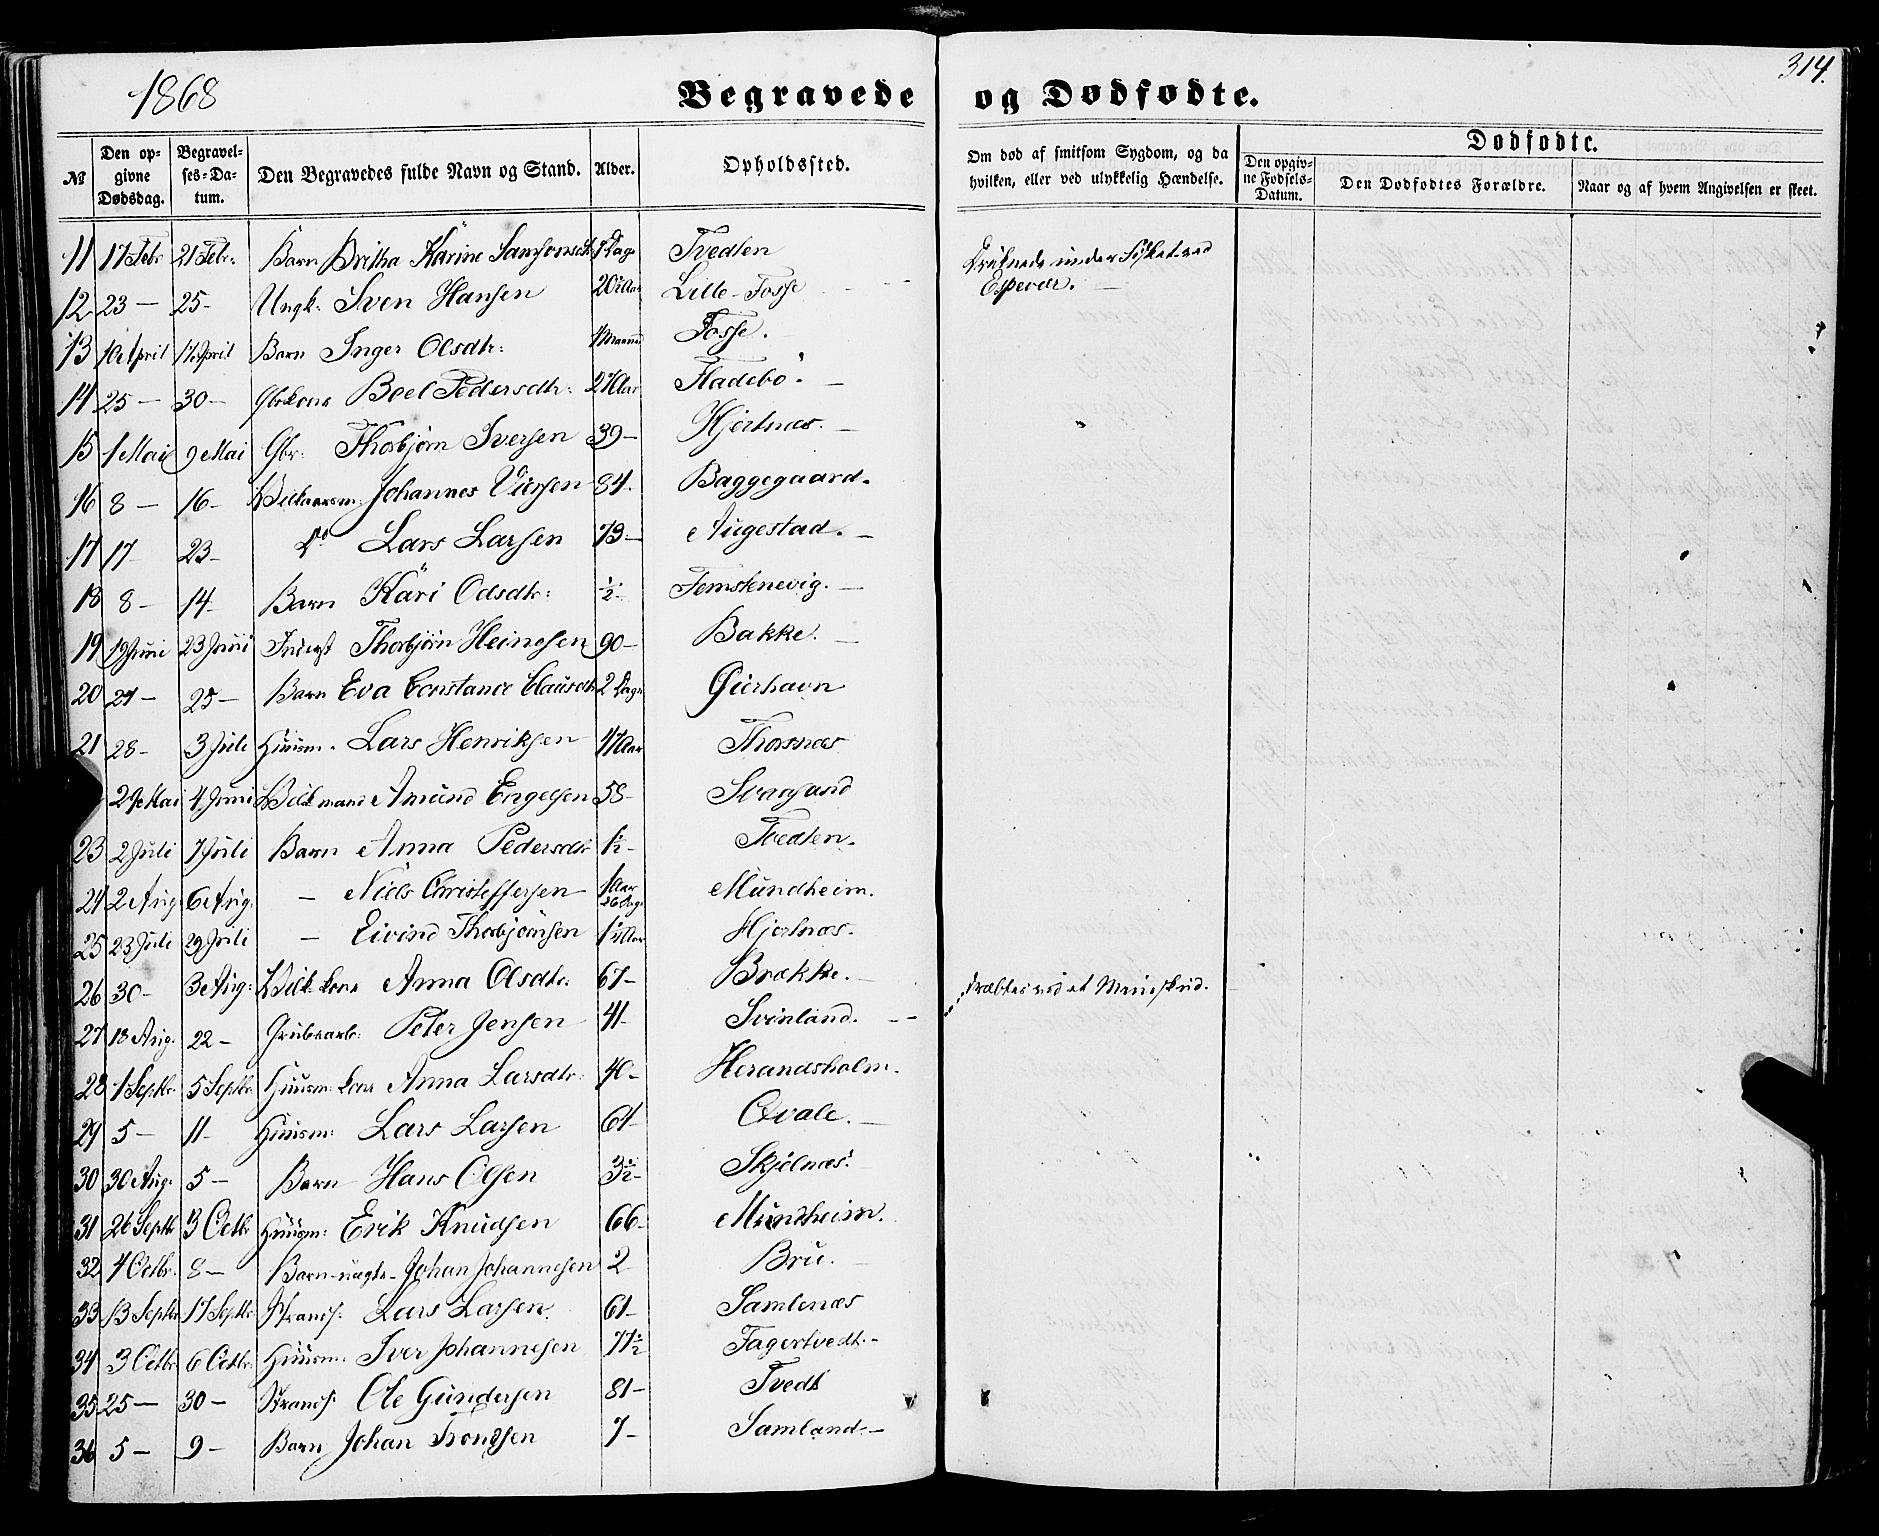 1868
Begravede og Dødfødte.
314.
№
Den opgivne Dødsdag.
Begravelses-Datum.
Den Begravedes fulde Navn og Stand.
Alder.
Opholdssted.
Om død af smitsom Sygdom, og da hvilken, eller ved ulykkelig Hændelse.
Dødfødte.
Den opgivne Fødsels-Datum.
Den Dødfødtes Forældre.
Naar og af hvem Angivelsen er skeet.
11 17 Febr 21 Febr: Barn Britha Karine Samsonsdtr Dage Tvedten
12 23 — 25 - Ungk: Sven Hansen 20 Aar Lille-Fosse - - - Druknede under Fisket ved Espevær.
13 10 April 17 April Barn Inger Olsdtr: 1 Maaned Fosse.
14 25 — 30 — Gbrkone Boel Pedersdtr: Aar Fladebø. —
15 1 Mai 9 Mai Gbr: Thorbjørn Iversen 39 — Hjertnæs. —
16 8 — 16 - Johannes 84. Baggegaard.
17 17 - 23 - Do Lars Larsen 73 — Augestad. —
18 8 — 14 - Barn Kari Odsdtr: ½ - Femstenevig. —
19 19 Juni 23 Juni Inderst Thorbjørn Heinesen 90 — Bakke. —
20 24 — 25 — Barn Eva Constance Clausdtr 2 Dage Gjerhavn
21 28 - 3 Juli Huusm. Lars Henriksen 47 Aar Thorsnæs
Mai 4 Juni Amund Engelsen 58 -
23 2 Juli 7 Juli Barn Anna Pedersdtr ½ - Tvedten.
24 2 Aug. 6 Aug. — Niels Christoffersen 1 Aar 26 Dage Mundheim.
25 23 Juli 29 Juli — Eivind Thorbjørnsen Aar Hjertnæs.
26 30 - 3 Aug: kone Anna Olsdtr: 67 - Brække. —
27 18 Aug. 22 — Grubearb: Peter Jensen 41 - Svinland. - - ved et Mineskud.
28 1 Septbr. 5 Septbr. Huusm: kone Anna Larsdtr: 40 - Herandsholm.
29 5 — 11 - Huusm: Lars Larsen 64 - Qvale. —
30 30 Aug. 5 — Barn Hans Olsen 3½ - Skjelnæs.
31 26 Septbr 3 Octbr Huusm: Erik Knudsen 66 - Mundheim.
32 4 Octbr. 8 — Barn uægte - Johan Johannesen 2 Bru.
33 13 Septbr 17 Septbr. Lars Larsen. 61 - Samlenæs
34 3 Octbr 6 Octbr. Huusm: Iver Johannesen 77½ Fagertvedt. -
35 25 — 30 — Ole Gundersen 81 - Tvedt
36 5 — 9 - Barn Johan Trondsen 7 - Samland -